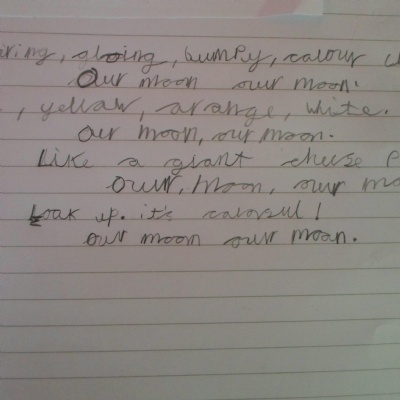 glowing, bumpy, colour
Our moon our moon.
, yellow, orange, white.
Our moon, our moon.
Like a giant cheese
Our, moon, our
Look up. it's colorsul!
our moon our moon.